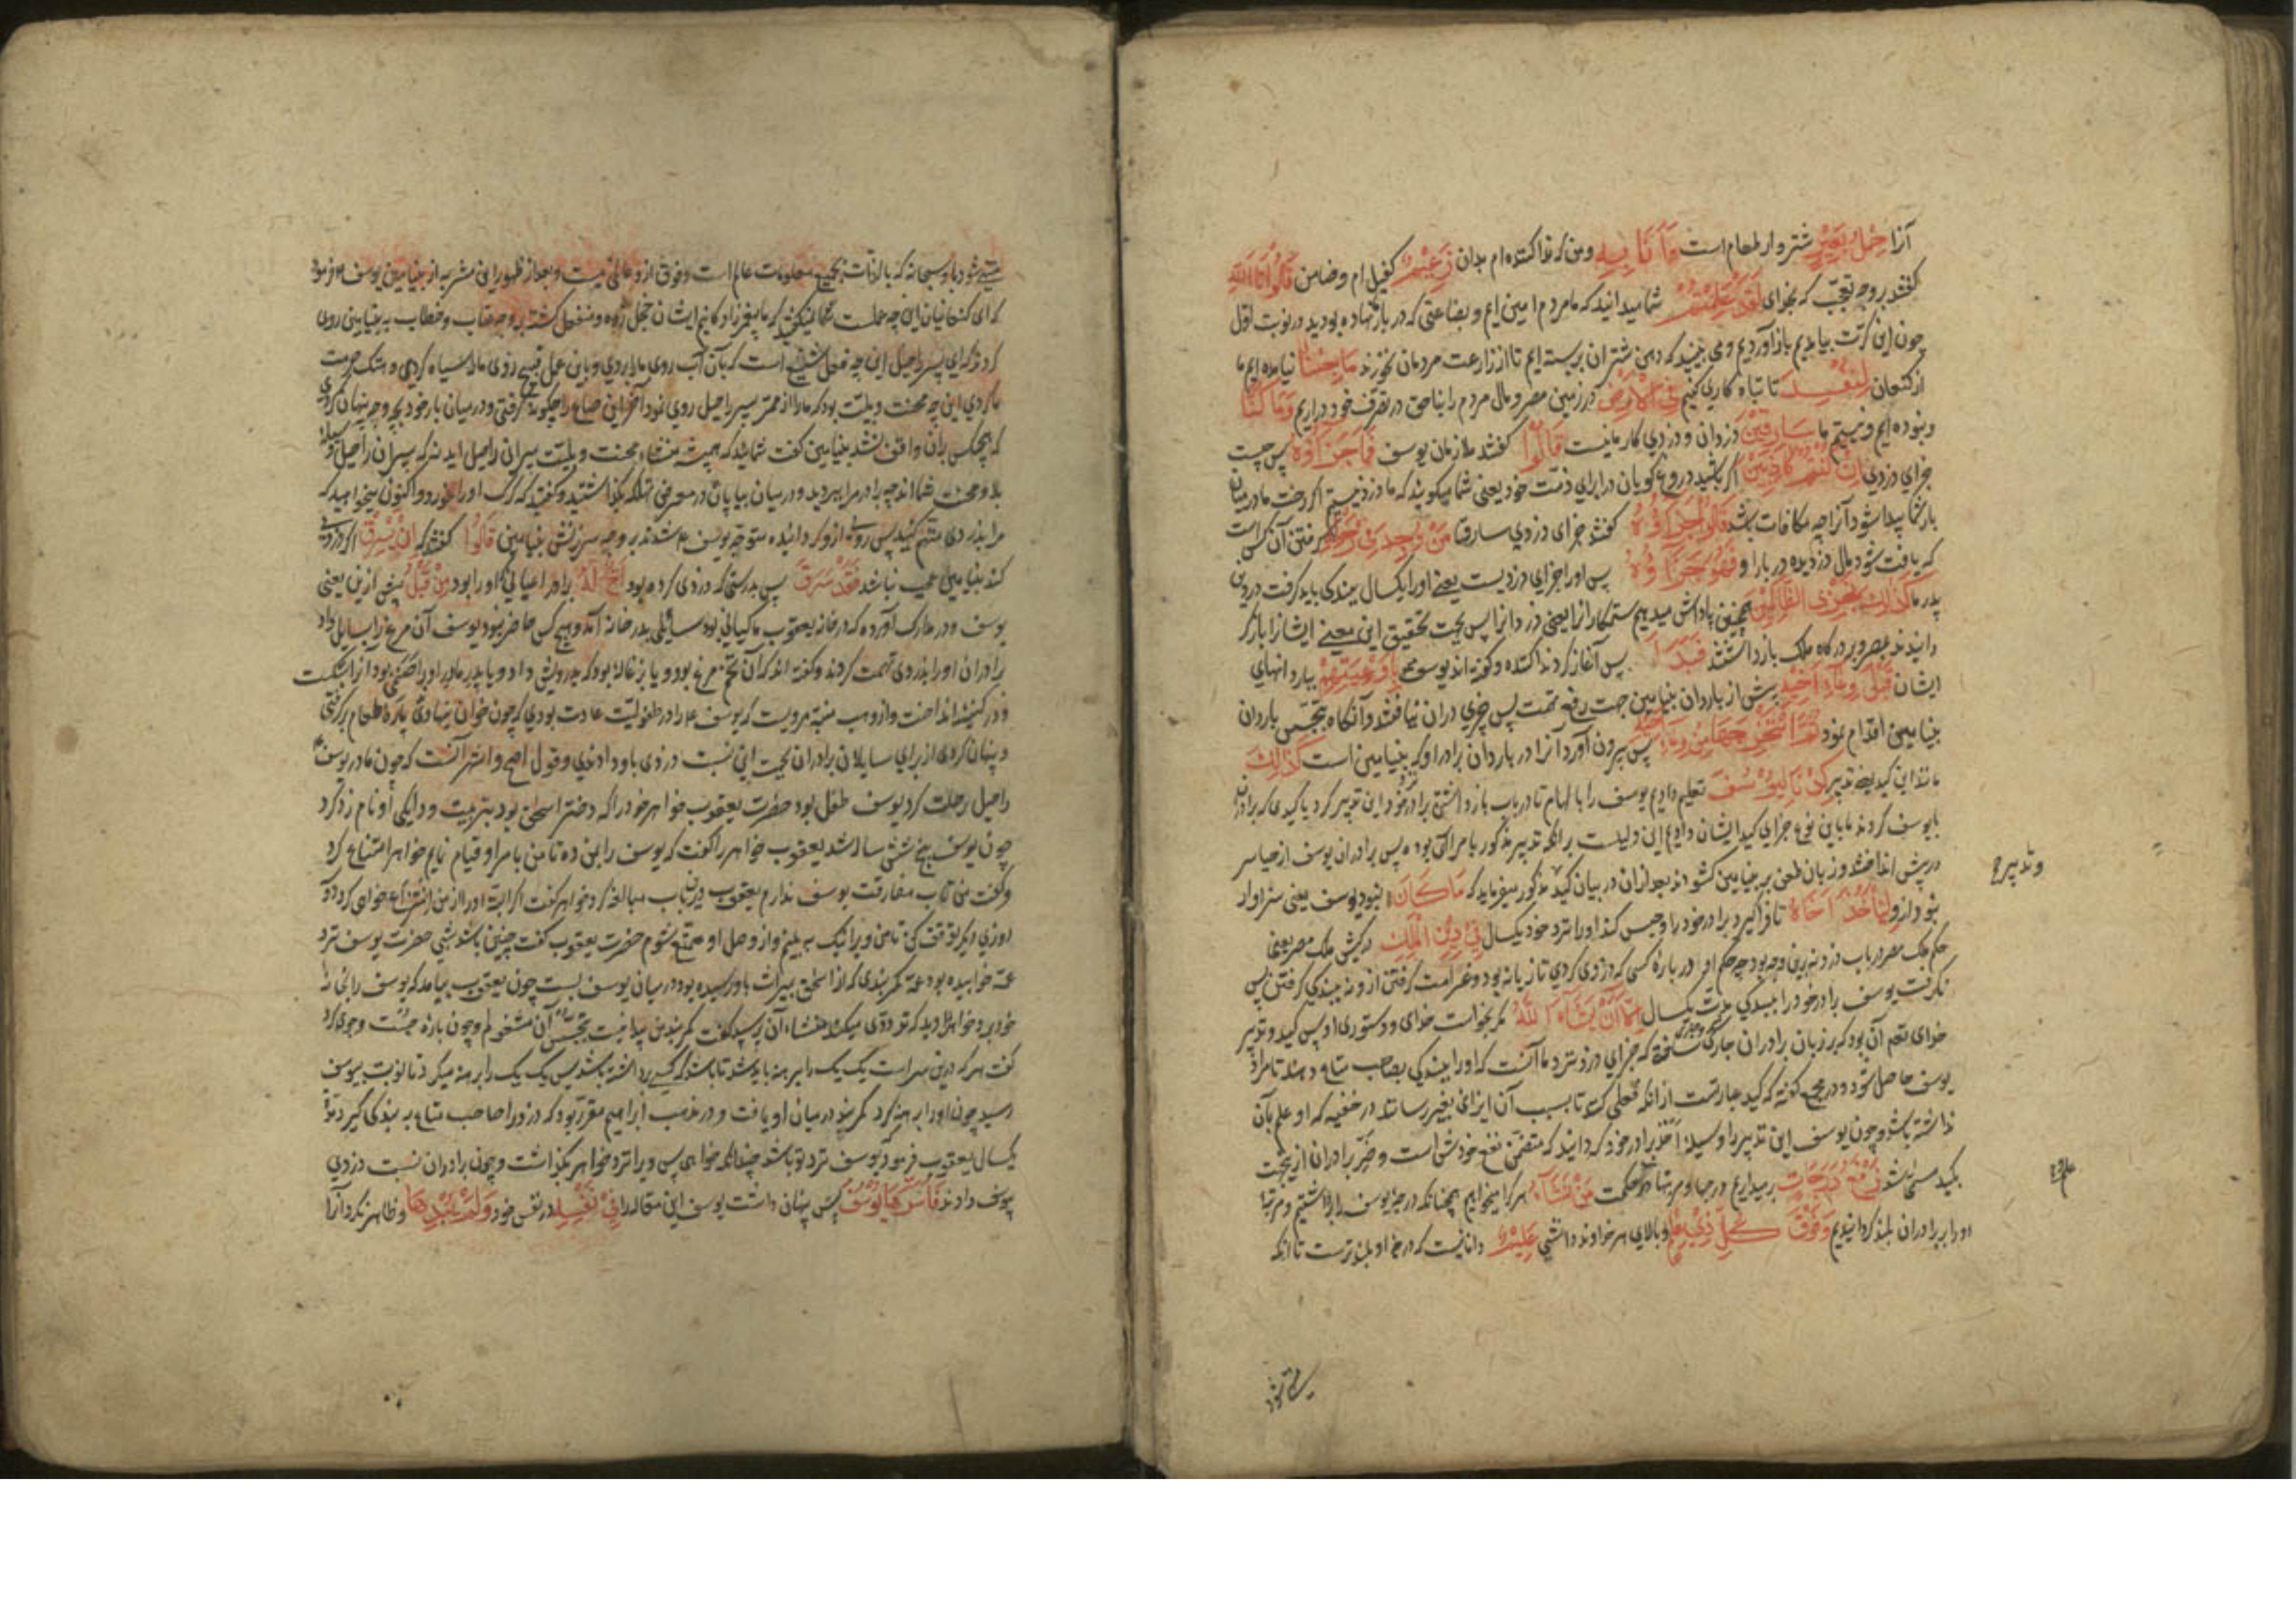 آنرا حِمْلُ بَعِيْرٍ شتروار طعام است وَاَنَا بِهٖ و من که ندا کننده ام بدان زَعِيْمٌ کفیل ام و ضامن قَالُوْا تَاللّٰهِ
کفتند بر وجه تعجب که بخدای لَقَدْ عَلِمْتُمْ شما میدانید که ما مردم امین ایم و بضاعتی که در بار نهاده بودید در نوبت اول
چون این کرت بیامدیم باز آوردیم و می بینید که دهن شتران بر بسته ایم تا از زراعت مردمان نخورند مَا جِئْنَا نیامده ایم ما
از کنعان لِنُفْسِدَ تا تباه کاری کنیم فِي الْاَرْضِ در زمین مصر و مال مردم را بناحق در تصرف خود دراریم وَمَا كُنَّا
و نبوده ایم و نیستیم ما سَارِقِيْنَ دزدان و دزدی کار ما نیست قَالُوْا کفتند ملازمان یوسف فَمَا جَزَاؤُهٗ پس چیست
جزای دزدی اِنْ كُنْتُمْ كَاذِبِيْنَ اکر باشید دروغ کویان در ابرای ذمت خود یعنی شما میکویید که ما دزد نیستیم اکر رخت ما در میان
بار شما پیدا شود آنرا چه مکافات باشد قَالُوْا جَزَاؤُهٗ کفتند جزای دزدی سارق مَنْ وُجِدَ فِيْ رَحْلِهٖ کرفتن آن کس است
که یافت شود مال دزدیده در بار او فَهُوَ جَزَاؤُهٗ پس او را جزای دزدیست یعنی او را یکسال ببندکی باید کرفت در دین
پدر ما كَذٰلِكَ نَجْزِي الظَّالِمِيْنَ همچنین پاداش میدهیم ستمکارانرا یعنی دزدانرا پس بجهت تحقیق این معنی ایشانرا باز کر
دانیدند بمصر و بدرکاه ملک باز داشتند فَبَدَاَ پس آغاز کرد ندا کننده و کفته اند یوسف بِاَوْعِيَتِهِمْ ببار دانهای
ایشان قَبْلَ وِعَاءِ اَخِيْهِ پیش از باردان بنیامین جهت رفع تهمت پس چیزی دران نیافتند و آنکاه بتجسس باردان
بنیامین اقدام نمود ثُمَّ اسْتَخْرَجَهَا مِنْ وِعَاءِ اَخِيْهِ پس بیرون آورد آنرا در باردان برادر او که بنیامین است كَذٰلِكَ
مانند این کید یعنی تدبیر كِدْنَا لِيُوْسُفَ تعلیم دادیم یوسف را بالهام تا در باب باز داشتن برادر خود این تدبیر کرد یا کیدی که برادران
با یوسف کردند ما باین نوع جزای کید ایشان دادیم این دلیلست بر انکه تدبیر مذکور بامر الهی بوده پس برادران یوسف از حیا سر
در پیش انداختند و زبان طعن بر بنیامین کشودند بعد ازان در بیان کید مذکور میفرماید که مَا كَانَ نبود یوسف یعنی سزاوار
نبود ازو لِيَاْخُذَ اَخَاهُ تا فراکیرد برادر خود را و حبس کند او را نزد خود یکسال فِيْ دِيْنِ الْمَلِكِ در کیش ملک مصر یعنی
حکم ملک مصر در باب دزد نه برین وجه بود چه حکم او در باره کسی که دزدی کردی تازیانه بود و غرامت کرفتن ازو نه ببندکی کرفتن پس
نکرفت یوسف برادر خود را ببندکی مدت یکسال اِلَّا اَنْ يَشَاءَ اللّٰهُ مکر بخواست خدای و دستوری او پس کید و تدبیر
خدای تعالی آن بود که بر زبان برادران جاری ساخت که جزای دزد نزد ما آنست که او را ببندکی بصاحب متاع دهند تا مراد
یوسف حاصل شود و در مجمع کفته که کید عبارتست از انکه فعلی کند تا بسبب آن ایذای بغیر رساند در خفیه که او علم بآن
نداشته باشد و چون یوسف این تدبیر را وسیله اخذ برادر خود کردانید که متضمن نفع خودش است و ضرر برادران ازینجهت
بکید مسمی شد نَرْفَعُ دَرَجَاتٍ برمیداریم درجها و مرتبها در حکمت مَنْ نَشَاءُ هر کرا میخواهیم همچنانکه درجه یوسف را برداشتیم و مرتبه
او را بر برادران بلند کردانیدیم وَفَوْقَ كُلِّ ذِيْ عِلْمٍ و بالای هر خداوند دانشی عَلِيْمٌ داناییست که درجه او بلندترست تا انکه
و تدبیر
منتهی شود باو سبحانه که بالذات بجمیع معلومات عالم است و فوق ازو عالمی نیست و بعد از ظهور این مشربه از بنیامین یوسف فرمود
که ای کنعانیان این چه عملست شما میکفتید که ما پیغمبرزاد کانیم ایشان خجل زده و منفعل کشته بر وجه عتاب و خطاب به بنیامین روی
کردند که ای پسر راحیل این چه فعل شنیع است که بآن آب روی ما را بردی و باین عمل قبیح روی ما را سیاه کردی و هتک حرمت
ما کردی این چه محنت و بلیت بود که ما را از ممر پسر راحیل روی نمود آخر این صاع را چکونه کرفتی و در میان بار خود بچه وجه پنهان کردی
که هیچکس بران واقف نشد بنیامین کفت شمایید که همیشه منشاء محنت و بلیت پسران راحیل اید نه که پسران راحیل وسیله
بلا و محنت شما اند چه برادر مرا ببردید و در میان بیابان در معرض تهلکه بکذاشتید و کفتید که کرک او را بخورد و اکنون میخواهید که
مرا بدزدی متهم کنید پس روی ازو کردانیده متوجه یوسف شدند بر وجه سرزنش بنیامین قَالُوْا کفتند که اِنْ يَسْرِقْ اکر دزدی
کند بنیامین عجب نباشد فَقَدْ سَرَقَ پس بدرستی که دزدی کرده بود اَخٌ لَهٗ برادر اعیانی که او را بود مِنْ قَبْلُ پیش ازین یعنی
یوسف و در مدارک آورده که در خانه یعقوب ماکیانی بود سائلی بدر خانه آمد و هیچ کس حاضر نبود یوسف آن مرغ را بسایل داد
برادران او را بدزدی تهمت کردند و کفته اند که آن تخم مرغ بود و یا بزغاله بود که بدرویش داد و یا پدر مادر او را صنمی بود از انشکست
و در کنیف انداخت و از وهب منبه مرویست که یوسف را در طفولیت عادت بودی که چون خوان بنهادی پاره طعام برکرفتی
و پنهان کردی از برای سایلان برادران بجهت این نسبت دزدی باو دادندی و قول اصح و اشهر آنست که چون مادر یوسف
راحیل رحلت کرد یوسف طفل بود حضرت یعقوب خواهر خود را که دختر اسحق بود بتربیت و دایکی او نام زد کرد
چون یوسف پنج شش ساله شد یعقوب خواهر را کفت که یوسف را بمن ده تا من بامر او قیام نمایم خواهر امتناع کرد
و کفت من تاب مفارقت یوسف ندارم یعقوب درین باب مبالغه کرد خواهر کفت اکر البته او را از من انتزاع خواهی کرد دو
روزی دیکر توقف کن تا من ویرا نیک به بینم و از وصل او متمتع شوم حضرت یعقوب کفت چنین باشد شبی حضرت یوسف نزد
عمه خوابیده بود عمه کمربندی که از اسحق بمیراث باو رسیده بود در میان یوسف بست چون یعقوب بیامد که یوسف را بخانه
خود برد خواهر را دید که تردد می میکند منشاء آن پرسید کفت کمربند من پیدا نیست بتجسس آن مشغولم و چون پاره جست و جوی کرد
کفت هر که درین سراست یک یک را برهنه باید شد تا باشد که کسی برداشته باشد پس یک یک را برهنه میکرد تا نوبت بیوسف
رسید چون او را برهنه کرد کمربند در میان او یافت و در مذهب ابراهیم مقرر بود که دزد را صاحب متاع به بندکی کیرد تا
یکسال یعقوب فرمود یوسف نزد تو باشد چندانکه خواهی پس ویرا نزد خواهر بکذاشت و چون برادران نسبت دزدی
بیوسف دادند فَاَسَرَّهَا يُوْسُفُ پس پنهان داشت یوسف این مقاله را فِيْ نَفْسِهٖ در نفس خود وَلَمْ يُبْدِهَا و ظاهر نکرد آنرا